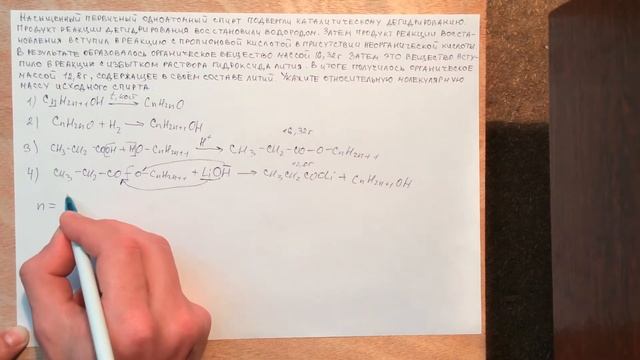 НАСЫЩЕННЫЙ ПЕРВИЧНЫЙ ОДНОАТОМНЫЙ СПИРТ ПОДВЕРГЛИ КАТАЛИТИЧЕСКОМУ ДЕГИДРИРОВАНИЮ.
ПРОДУКТ РЕАКЦИИ ДЕГИДРИРОВАНИЯ ВОССТАНОВИЛИ ВОДОРОДОМ. ЗАТЕМ ПРОДУКТ РЕАКЦИИ ВОССТА-
НОВЛЕНИЯ ВСТУПИЛ В РЕАКЦИЮ С ПРОПИОНОВОЙ КИСЛОТОЙ В ПРИСУТСТВИИ НЕОРГАНИЧЕСКОЙ КИСЛОТЫ.
В РЕЗУЛЬТАТЕ ОБРАЗОВАЛОСЬ ОРГАНИЧЕСКОЕ ВЕЩЕСТВО МАССОЙ 16,32г. ЗАТЕМ ЭТО ВЕЩЕСТВО ВСТУ-
ПИЛО В РЕАКЦИЮ С ИЗБЫТКОМ РАСТВОРА ГИДРОКСИДА ЛИТИЯ. В ИТОГЕ ПОЛУЧИЛОСЬ ОРГАНИЧЕСКОЕ
МАССОЙ 12,8г, СОДЕРЖАЩЕЕ В СВОЁМ СОСТАВЕ ЛИТИЙ. УКАЖИТЕ ОТНОСИТЕЛЬНУЮ МОЛЕКУЛЯРНУЮ
МАССУ ИСХОДНОГО СПИРТА.
1) CnH2n+1OH t, кат → CnH2nO
2) CnH2nO + H2 → CnH2n+1OH
16,32г
3) CH3-CH2-COOH + HO-CnH2n+1 H+ → CH3-CH2-CO-O-CnH2n+1
4) CH3-CH2-CO-O-CnH2n+1 + LiOH → CH3CH2COOLi + CnH2n+1OH
n =